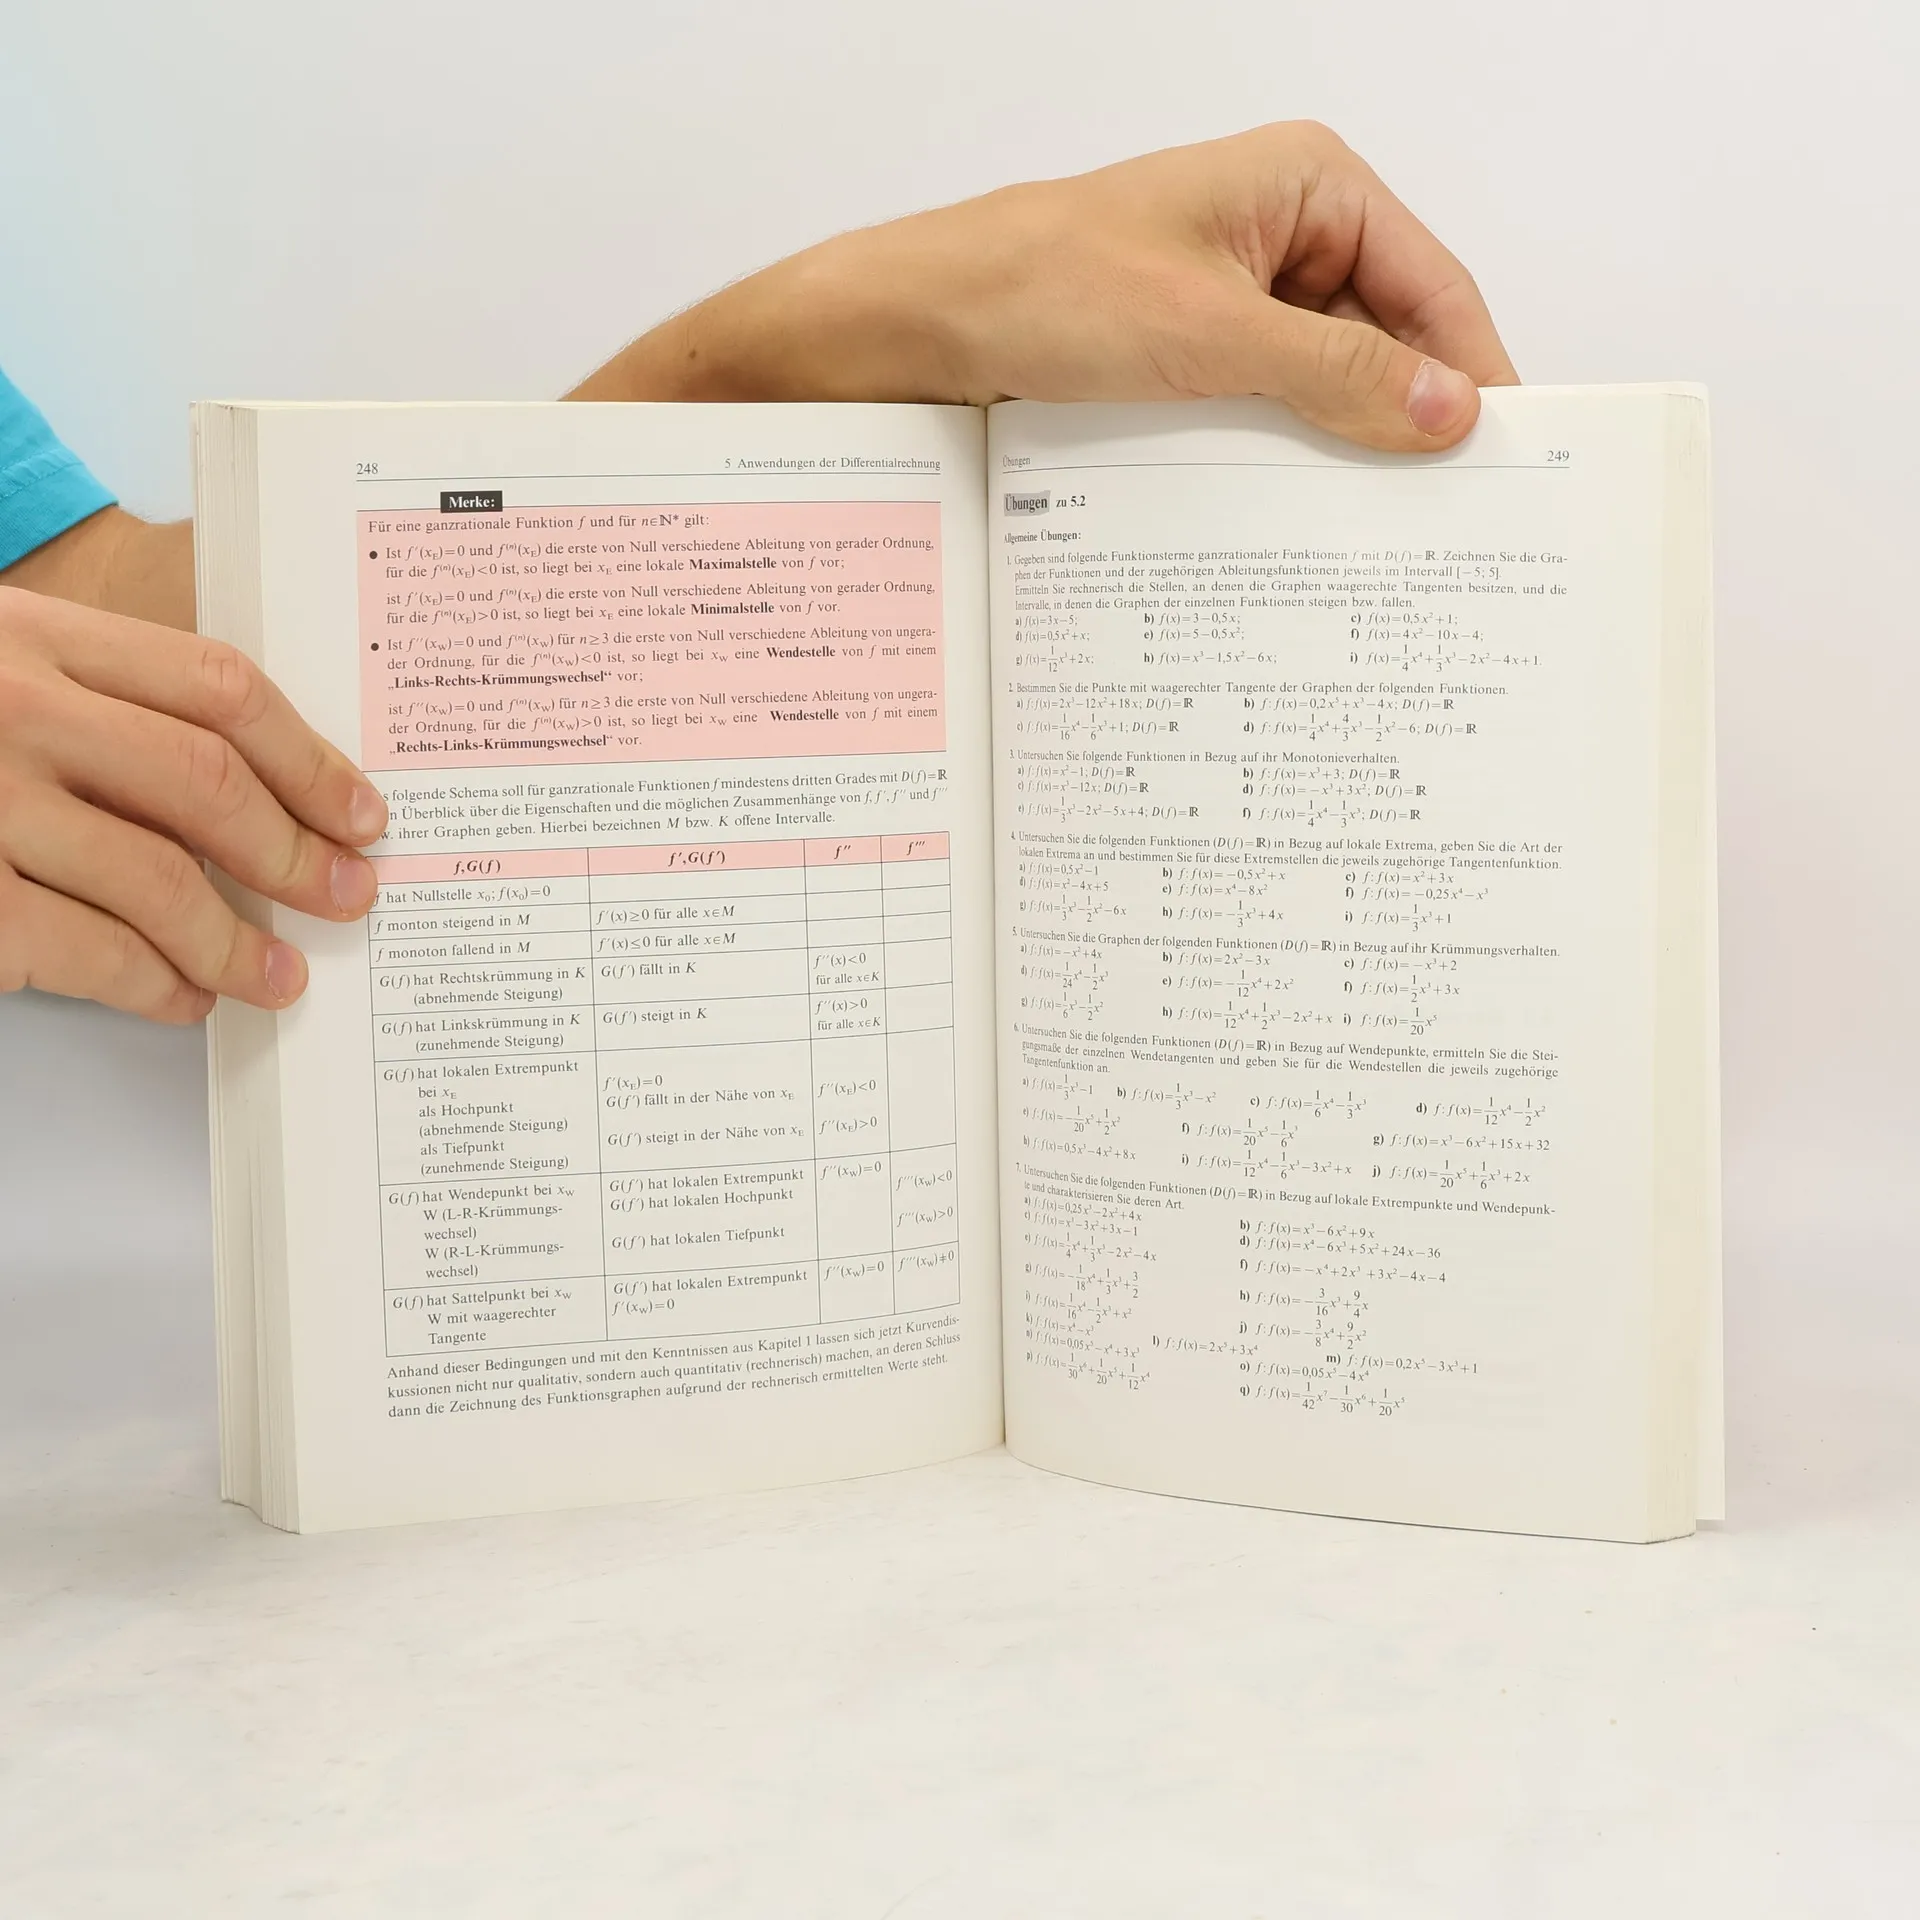 248
5 Anwendungen der Differentialrechnung
Merke:
Für eine ganzrationale Funktion f und für n∈ℕ* gilt:
● Ist f′(x_E)=0 und f⁽ⁿ⁾(x_E) die erste von Null verschiedene Ableitung von gerader Ordnung,
für die f⁽ⁿ⁾(x_E)<0 ist, so liegt bei x_E eine lokale Maximalstelle von f vor;
ist f′(x_E)=0 und f⁽ⁿ⁾(x_E) die erste von Null verschiedene Ableitung von gerader Ordnung,
für die f⁽ⁿ⁾(x_E)>0 ist, so liegt bei x_E eine lokale Minimalstelle von f vor.
● Ist f′′(x_W)=0 und f⁽ⁿ⁾(x_W) für n≥3 die erste von Null verschiedene Ableitung von ungera-
der Ordnung, für die f⁽ⁿ⁾(x_W)<0 ist, so liegt bei x_W eine Wendestelle von f mit einem
„Links-Rechts-Krümmungswechsel“ vor;
ist f′′(x_W)=0 und f⁽ⁿ⁾(x_W) für n≥3 die erste von Null verschiedene Ableitung von ungera-
der Ordnung, für die f⁽ⁿ⁾(x_W)>0 ist, so liegt bei x_W eine Wendestelle von f mit einem
„Rechts-Links-Krümmungswechsel“ vor.
s folgende Schema soll für ganzrationale Funktionen f mindestens dritten Grades mit D(f)=ℝ
n Überblick über die Eigenschaften und die möglichen Zusammenhänge von f, f′, f′′ und f′′′
w. ihrer Graphen geben. Hierbei bezeichnen M bzw. K offene Intervalle.
f,G(f) f′,G(f′) f′′ f′′′
f hat Nullstelle x₀; f(x₀)=0
f monton steigend in M f′(x)≥0 für alle x∈M
f monoton fallend in M f′(x)≤0 für alle x∈M
G(f) hat Rechtskrümmung in K G(f′) fällt in K f′′(x)<0
(abnehmende Steigung) für alle x∈K
G(f) hat Linkskrümmung in K G(f′) steigt in K f′′(x)>0
(zunehmende Steigung) für alle x∈K
G(f) hat lokalen Extrempunkt
bei x_E f′(x_E)=0
als Hochpunkt G(f′) fällt in der Nähe von x_E f′′(x_E)<0
(abnehmende Steigung)
als Tiefpunkt G(f′) steigt in der Nähe von x_E f′′(x_E)>0
(zunehmende Steigung)
G(f) hat Wendepunkt bei x_W G(f′) hat lokalen Extrempunkt f′′(x_W)=0
W (L-R-Krümmungs- G(f′) hat lokalen Hochpunkt f′′′(x_W)<0
wechsel)
W (R-L-Krümmungs- G(f′) hat lokalen Tiefpunkt f′′′(x_W)>0
wechsel)
G(f) hat Sattelpunkt bei x_W G(f′) hat lokalen Extrempunkt f′′(x_W)=0 f′′′(x_W)≠0
W mit waagerechter f′(x_W)=0
Tangente
Anhand dieser Bedingungen und mit den Kenntnissen aus Kapitel 1 lassen sich jetzt Kurvendis-
kussionen nicht nur qualitativ, sondern auch quantitativ (rechnerisch) machen, an deren Schluss
dann die Zeichnung des Funktionsgraphen aufgrund der rechnerisch ermittelten Werte steht.
Übungen
249
Übungen zu 5.2
Allgemeine Übungen:
1. Gegeben sind folgende Funktionsterme ganzrationaler Funktionen f mit D(f)=ℝ. Zeichnen Sie die Gra-
phen der Funktionen und der zugehörigen Ableitungsfunktionen jeweils im Intervall [−5; 5].
Ermitteln Sie rechnerisch die Stellen, an denen die Graphen waagerechte Tangenten besitzen, und die
Intervalle, in denen die Graphen der einzelnen Funktionen steigen bzw. fallen.
a) f(x)=3x−5; b) f(x)=3−0,5x; c) f(x)=0,5x²+1;
d) f(x)=0,5x²+x; e) f(x)=5−0,5x²; f) f(x)=4x²−10x−4;
g) f(x)=1/12x³+2x; h) f(x)=x³−1,5x²−6x; i) f(x)=1/4x⁴+1/3x³−2x²−4x+1.
2. Bestimmen Sie die Punkte mit waagerechter Tangente der Graphen der folgenden Funktionen.
a) f: f(x)=2x³−12x²+18x; D(f)=ℝ b) f: f(x)=0,2x⁵+x³−4x; D(f)=ℝ
c) f: f(x)=1/16x⁴−1/6x³+1; D(f)=ℝ d) f: f(x)=1/4x⁴+4/3x³−1/2x²−6; D(f)=ℝ
3. Untersuchen Sie folgende Funktionen in Bezug auf ihr Monotonieverhalten.
a) f: f(x)=x²−1; D(f)=ℝ b) f: f(x)=x³+3; D(f)=ℝ
c) f: f(x)=x³−12x; D(f)=ℝ d) f: f(x)=−x³+3x²; D(f)=ℝ
e) f: f(x)=1/3x³−2x²−5x+4; D(f)=ℝ f) f: f(x)=1/4x⁴−1/3x³; D(f)=ℝ
4. Untersuchen Sie die folgenden Funktionen (D(f)=ℝ) in Bezug auf lokale Extrema, geben Sie die Art der
lokalen Extrema an und bestimmen Sie für diese Extremstellen die jeweils zugehörige Tangentenfunktion.
a) f: f(x)=0,5x²−1 b) f: f(x)=−0,5x²+x c) f: f(x)=x²+3x
d) f: f(x)=x²−4x+5 e) f: f(x)=x⁴−8x² f) f: f(x)=−0,25x⁴−x³
g) f: f(x)=1/3x³−1/2x²−6x h) f: f(x)=−1/3x³+4x i) f: f(x)=1/3x³+1
5. Untersuchen Sie die Graphen der folgenden Funktionen (D(f)=ℝ) in Bezug auf ihr Krümmungsverhalten.
a) f: f(x)=−x²+4x b) f: f(x)=2x²−3x c) f: f(x)=−x³+2
d) f: f(x)=1/24x⁴−1/2x³ e) f: f(x)=−1/12x⁴+2x² f) f: f(x)=1/2x³+3x
g) f: f(x)=1/6x³−1/2x² h) f: f(x)=1/12x⁴+1/2x³−2x²+x i) f: f(x)=1/20x⁵
6. Untersuchen Sie die folgenden Funktionen (D(f)=ℝ) in Bezug auf Wendepunkte, ermitteln Sie die Stei-
gungsmaße der einzelnen Wendetangenten und geben Sie für die Wendestellen die jeweils zugehörige
Tangentenfunktion an.
a) f: f(x)=1/3x³−1 b) f: f(x)=1/3x³−x² c) f: f(x)=1/6x⁴−1/3x³ d) f: f(x)=1/12x⁴−1/2x²
e) f: f(x)=−1/20x⁵+1/2x² f) f: f(x)=1/20x⁵−1/6x³ g) f: f(x)=x³−6x²+15x+32
h) f: f(x)=0,5x³−4x²+8x i) f: f(x)=1/12x⁴−1/6x³−3x²+x j) f: f(x)=1/20x⁵+1/6x³+2x
7. Untersuchen Sie die folgenden Funktionen (D(f)=ℝ) in Bezug auf lokale Extrempunkte und Wendepunk-
te und charakterisieren Sie deren Art.
a) f: f(x)=0,25x³−2x²+4x b) f: f(x)=x³−6x²+9x
c) f: f(x)=x³−3x²+3x−1 d) f: f(x)=x⁴−6x³+5x²+24x−36
e) f: f(x)=1/4x⁴+1/3x³−2x²−4x f) f: f(x)=−x⁴+2x³+3x²−4x−4
g) f: f(x)=−1/18x⁴+1/3x³+3/2 h) f: f(x)=−3/16x³+9/4x
i) f: f(x)=1/16x⁴−1/2x³+x² j) f: f(x)=−3/8x⁴+9/2x²
k) f: f(x)=x⁴−x³ l) f: f(x)=2x⁵+3x⁴ m) f: f(x)=0,2x⁵−3x³+1
n) f: f(x)=0,05x⁵−x⁴+3x³ o) f: f(x)=0,05x⁵−4x⁴
p) f: f(x)=1/30x⁶+1/20x⁵+1/12x⁴ q) f: f(x)=1/42x⁷−1/30x⁶+1/20x⁵